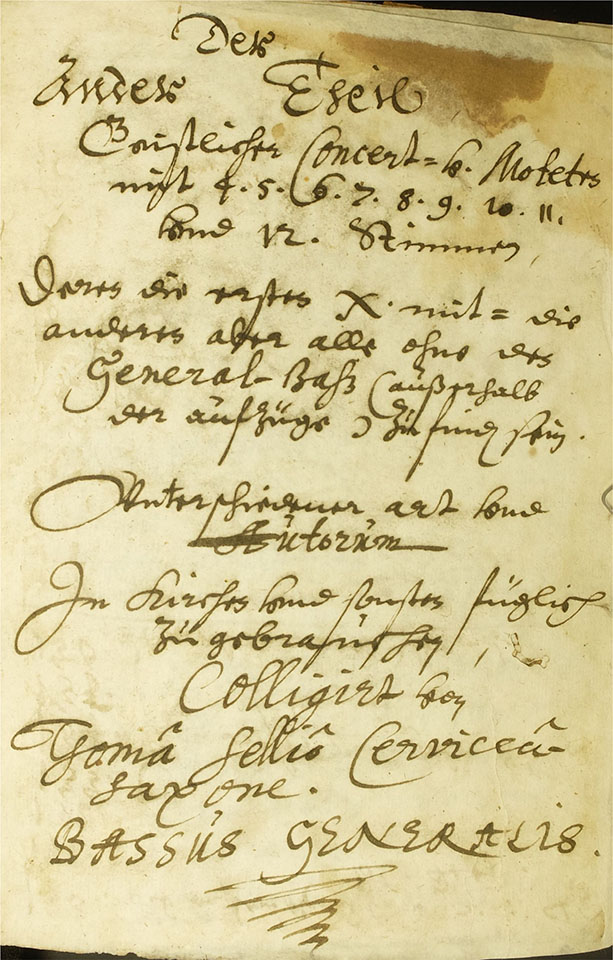 Der
Ander Theil
Geistlicher Concert= v. Moteten
mit 4. 5. 6. 7. 8. 9. 10. 11.
vnd 12. Stimmen,
Deren die ersten X. mit= die
anderen aber alle ohne den
General-Baß (außerhalb
der aufzüge) zu finden sein.
Vnterschiedener art vnd
Autorum
In Kirchen vnd sonsten füglich
zugebrauchen,
Colligirt von
Thomâ Sellio Cerviccâ-
saxone.
BASSUS GENERALIS.